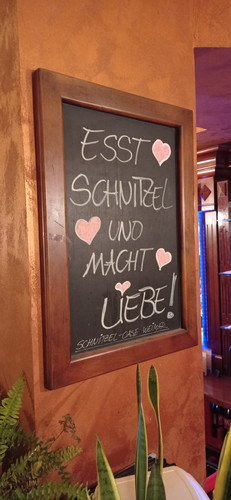 ESST
SCHNITZEL
UND
MACHT
LIEBE!
SCHNITZEL-OASE